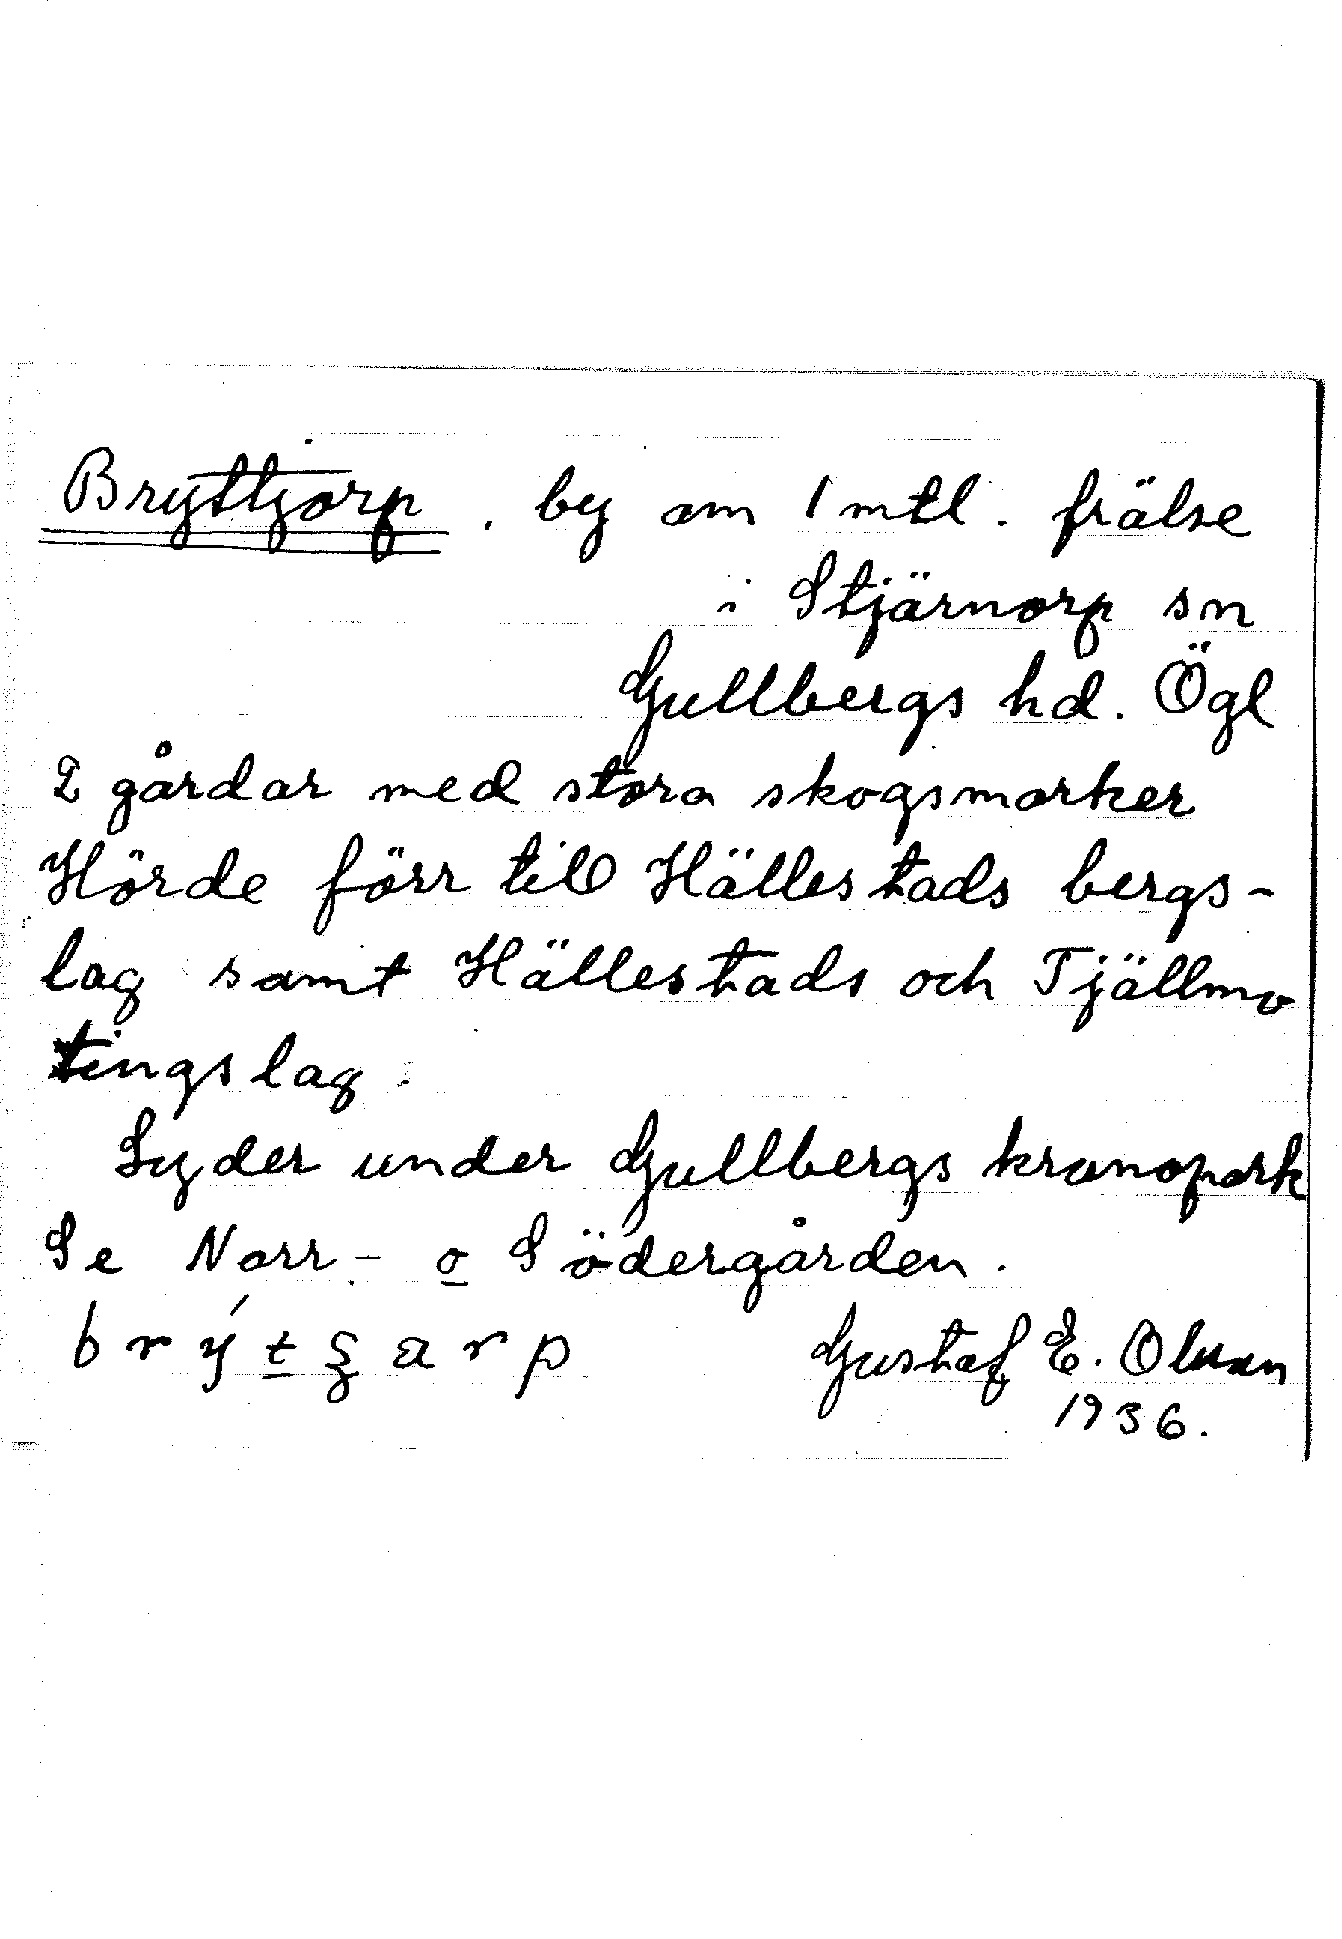 Bryttjorp. by om 1 mtl. frälse
i Stjärnorp sn
Gullbergs hd. Ögl
2 gårdar med stora skogsmarker
Hörde förr till Hällestads bergs-
lag samt Hällestads och Tjällmo
tingslag.
Lyder under Gullbergs kronopark
Se Norr- o Södergården.
Gustaf E. Olsson
1936.